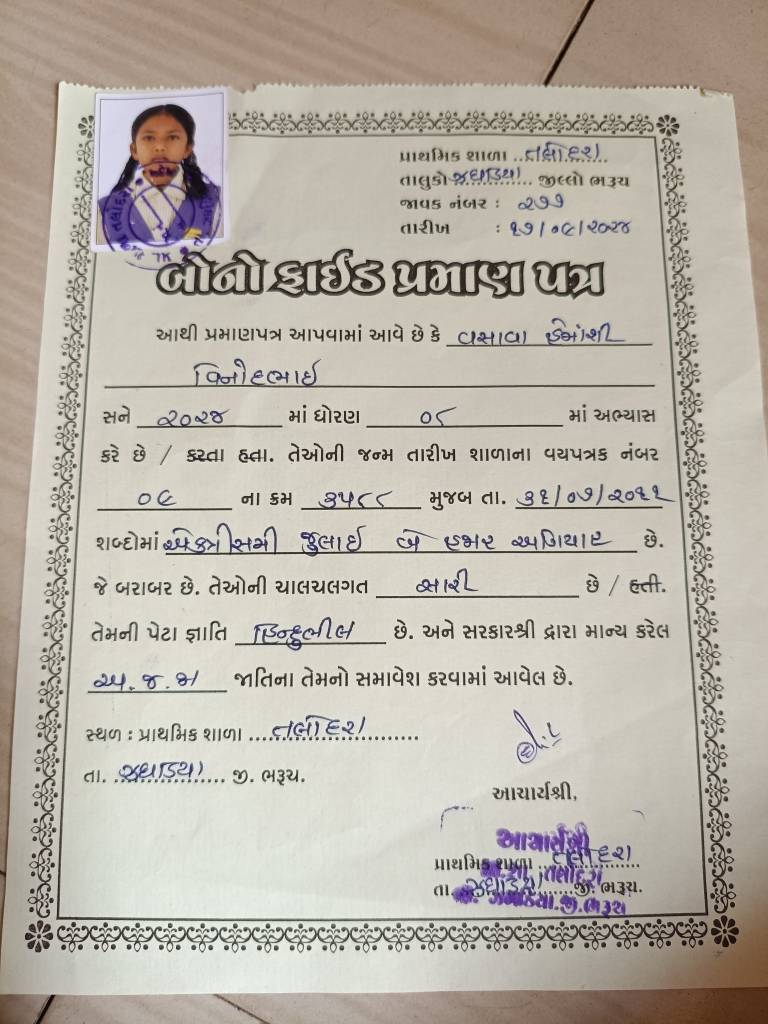 પ્રાથમિક શાળા ..તલોદરા.
તાલુકો ઝઘડિયા જીલ્લો ભરૂચ
જાવક નંબર : ૨૭૭
તારીખ : ૧૭/૦૯/૨૦૨૪
બોનોફાઈડ પ્રમાણ પત્ર
આથી પ્રમાણપત્ર આપવામાં આવે છે કે વસાવા હેમાંશી
વિનોદભાઇ
સને ૨૦૨૪ માં ધોરણ ૦૮ માં અભ્યાસ
કરે છે / કરતા હતા. તેઓની જન્મ તારીખ શાળાના વયપત્રક નંબર
૦૯ ના ક્રમ ૩૫૮૮ મુજબ તા. ૩૧/૦૭/૨૦૧૧
શબ્દોમાં એકત્રીસમી જુલાઇ બે હજાર અગિયાર છે.
જે બરાબર છે. તેઓની ચાલચલગત સારી છે / હતી.
તેમની પેટા જ્ઞાતિ હિન્દુભીલ છે. અને સરકારશ્રી દ્રારા માન્ય કરેલ
અ.જ.જા જાતિના તેમનો સમાવેશ કરવામાં આવેલ છે.
સ્થળ : પ્રાથમિક શાળા ....તલોદરા..........
તા. ..ઝઘડિયા.... જી. ભરૂચ.
આચાર્યશ્રી,
આચાર્યશ્રી
પ્રાથમિક શાળા ..તલોદરા..
પ્રા.શા. તલોદરા
તા. ..ઝઘડિયા.....જી. ભરૂચ.
તા. ઝઘડિયા.જી.ભરૂચ